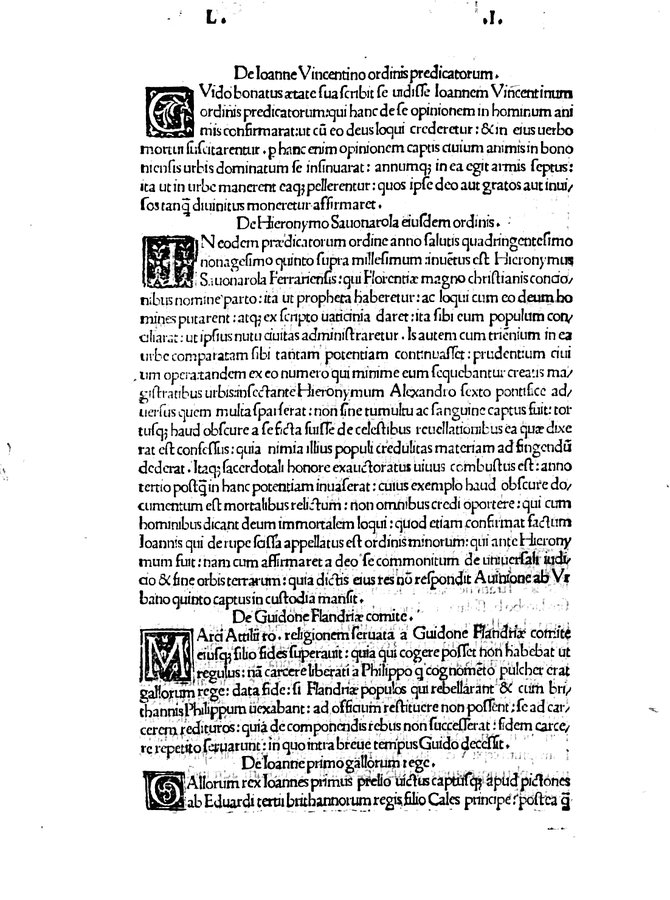 L. .I.
De Ioanne Vincentino ordinis predicatorum.
GVido bonatus ætate sua scribit se uidisse Ioannem Vincentinum
ordinis predicatorum:qui hanc de se opinionem in hominum ani
mis confirmarat:ut cū eo deus loqui crederetur:& in eius uerbo
mortui suscitarentur. p hanc enim opinionem captis ciuium animis in bono
niensis urbis dominatum se insinuarat: annumq; in ea egit armis septus:
ita ut in urbe manerent eaq; pellerentur: quos ipse deo aut gratos aut inui/
sos tanq̄ diuinitus moneretur affirmaret.
De Hieronymo Sauonarola eiusdem ordinis.
IN eodem prædicatorum ordine anno salutis quadringentesimo
nonagesimo quinto supra millesimum inuētus est Hieronymus
Sauonarola Ferrariensis:qui Florentiæ magno christianis concio/
nibus nomine parto: ita ut propheta haberetur: ac loqui cum eo deum ho
mines putarent:atq; ex scripto uaticinia daret:ita sibi eum populum con/
ciliarat: ut ipsius nutu ciuitas administraretur. Is autem cum triēnium in ea
urbe comparatam sibi tantam potentiam continuasset: prudentium ciui
um opera:tandem ex eo numero qui minime eum sequebantur creatis ma/
gistratibus urbis:insectante Hieronymum Alexandro sexto pontifice ad/
uersus quem multa sparserat: non sine tumultu ac sanguine captus fuit: tor
tusq; haud obscure a se ficta fuisse de celestibus reuellationibus ea quæ dixe
rat est confessus: quia nimia illius populi credulitas materiam ad fingendū
dederat. Itaq; sacerdotali honore exauctoratus uiuus combustus est: anno
tertio postq̄ in hanc potentiam inuaserat: cuius exemplo haud obscure do/
cumentum est mortalibus relictum: non omnibus credi oportere: qui cum
hominibus dicant deum immortalem loqui: quod etiam confirmat factum
Ioannis qui de rupe scissa appellatus est ordinis minorum: qui ante Hierony
mum fuit: nam cum affirmaret a deo se commonitum de uniuersali iudi/
cio & fine orbis terrarum: quia dictis eius res nō respondit Auinione ab Vr
bano quinto captus in custodia mansit.
De Guidone Flandriæ comite.
MArci Attilii ro. religionem seruata a Guidone Flandriæ comite
eiusq; filio fides superauit: quia qui cogere posset non habebat ut
regulus: nā carcere liberati a Philippo q cognomēto pulcher erat
gallorum rege: data fide: si Flandriæ populos qui rebellarant & cum bri/
thannis Philippum uexabant: ad officium restituere non possent: se ad car/
cerem redituros: quia de componendis rebus non successerat: fidem carce/
re repetito seruarunt: in quo intra breue tempus Guido decessit.
De Ioanne primo gallorum rege.
GAllorum rex Ioannes primus prelio uictus captusq; apud pictones
ab Eduardi tertii brithannorum regis filio Cales principe: postea q̄